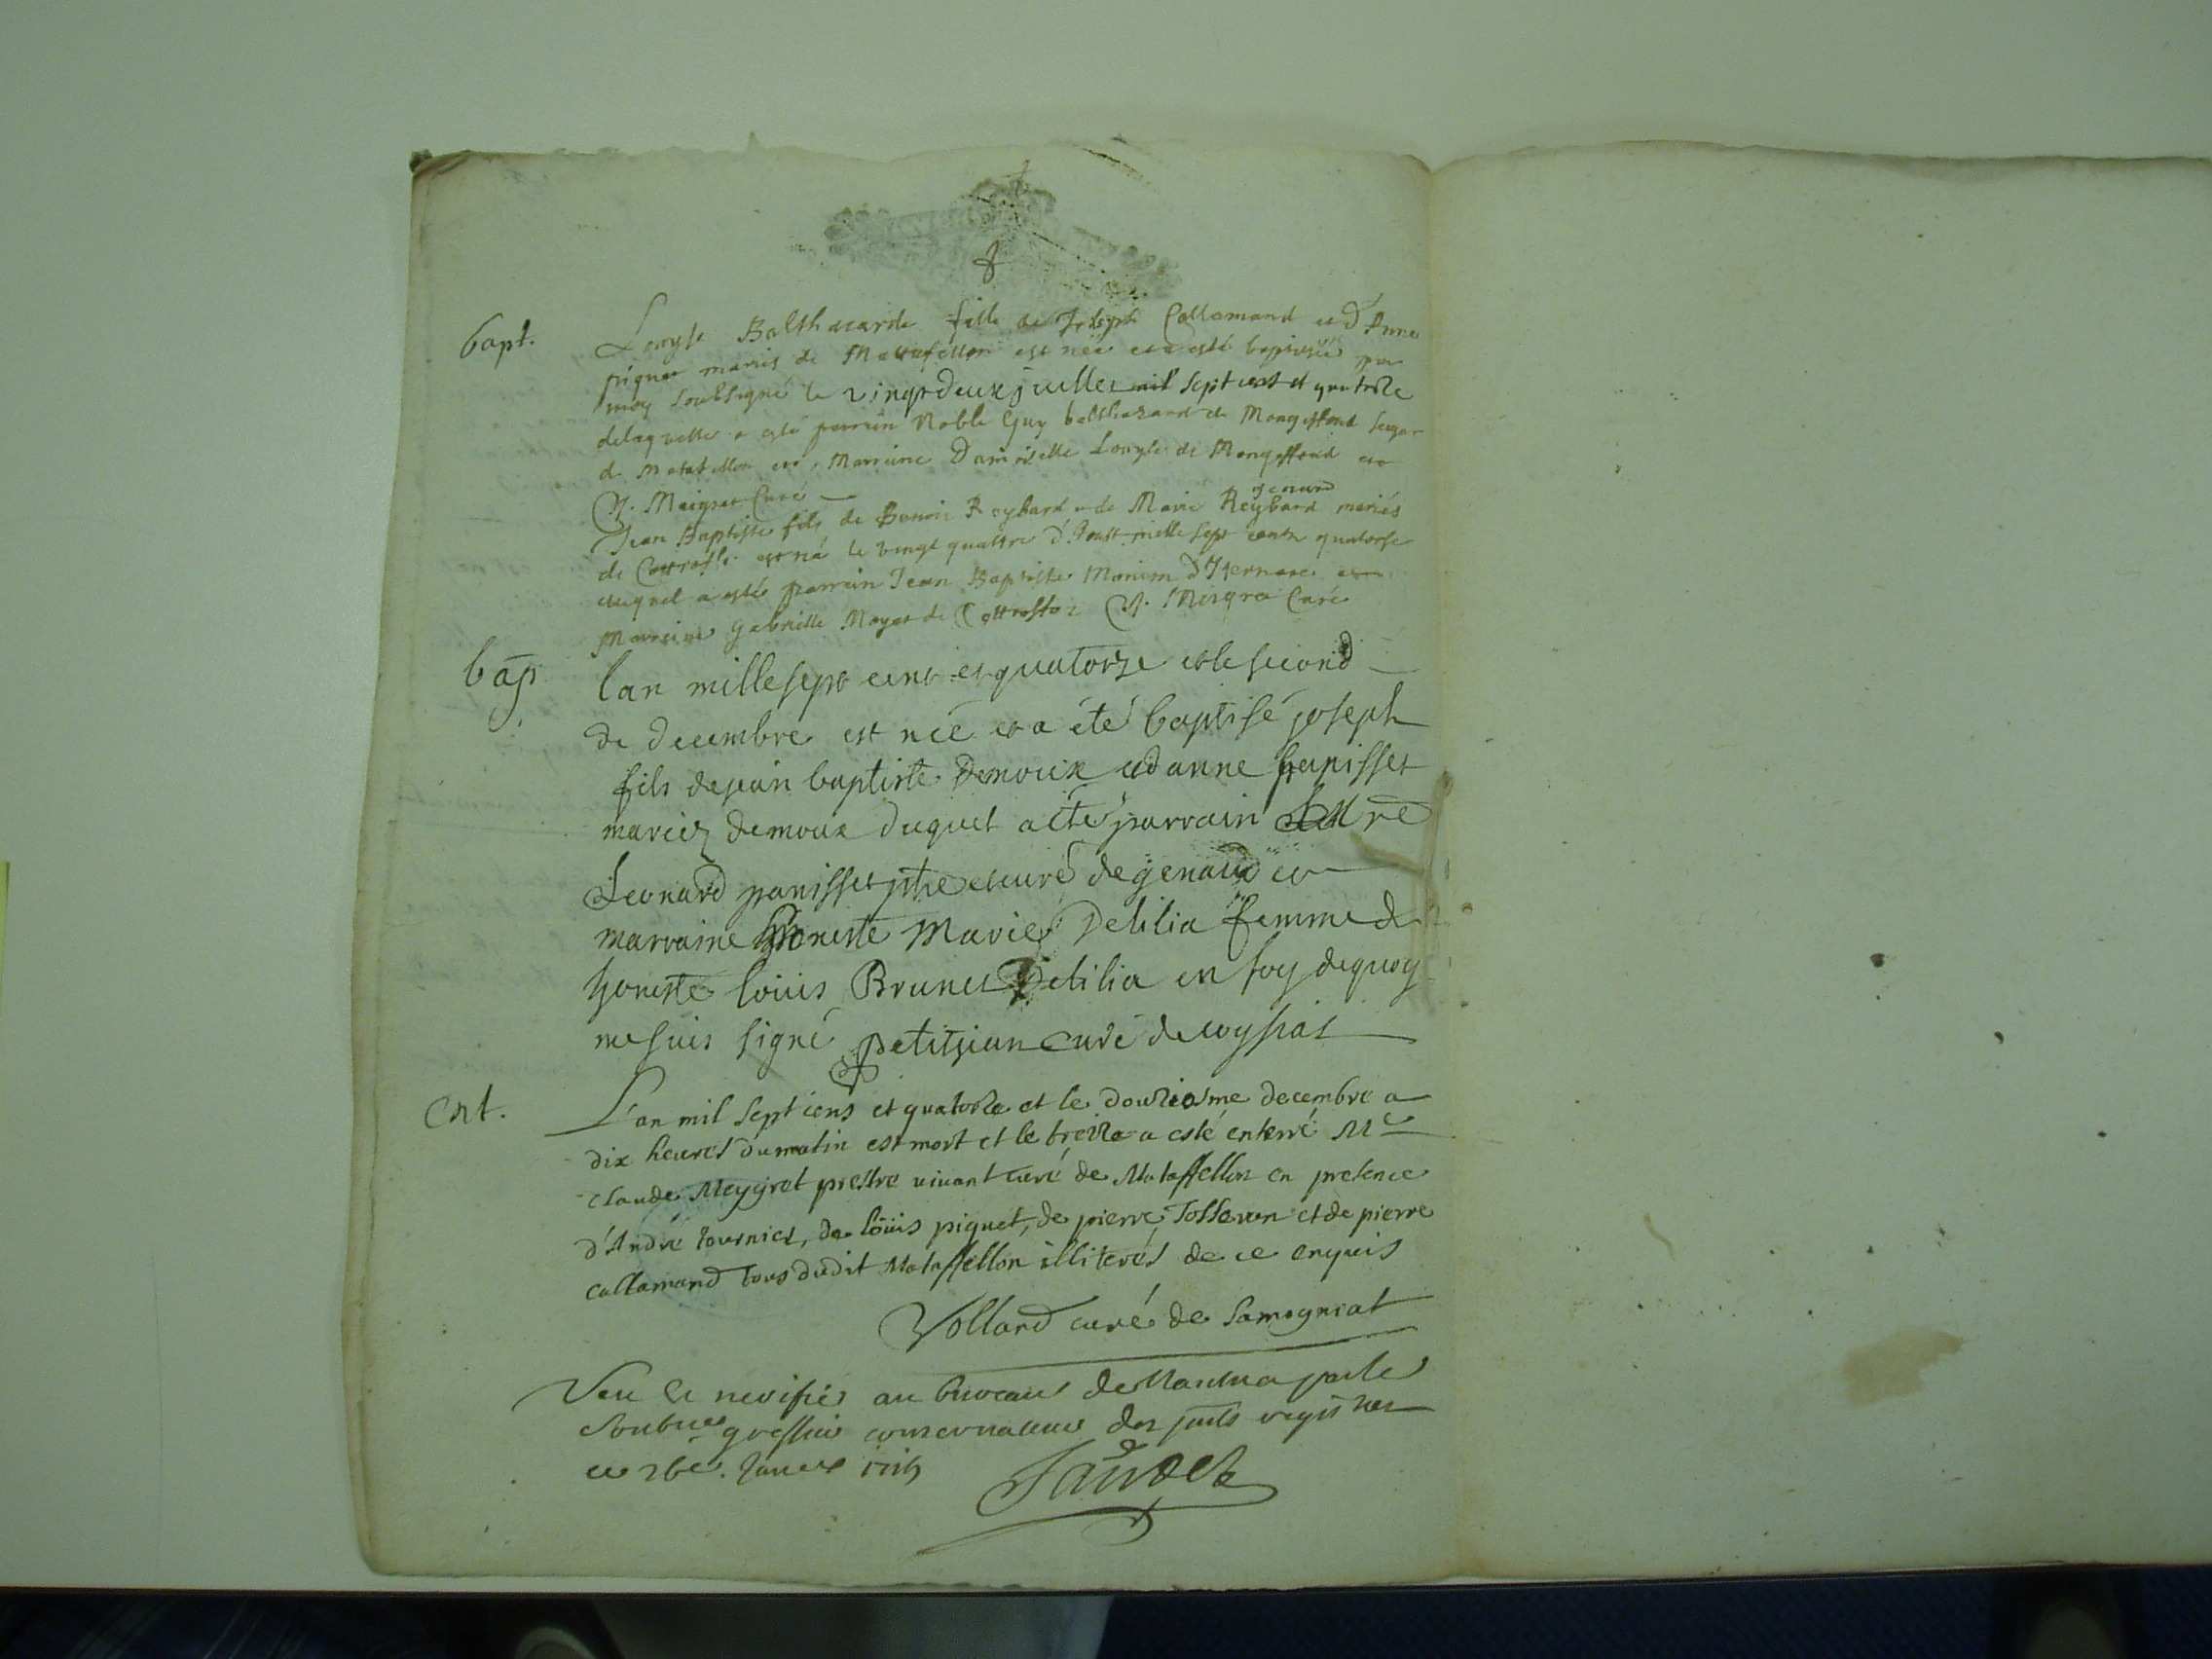 bapt.
Louyse Balthasarde fille de Joseph Callamand et d'Anne
piguet mariés de Mattafellon est née et a esté baptisée par
moy soubsigné le vingt deux juillet mil sept cent et quatorze
de laquelle a esté parrain Noble Guy balthazard de Mongeffond
de Matafellon et Marraine Damoiselle Louyse de Mongeffond
Cl. Meigret Curé
Jean Baptiste fils de Benoit Reybard et de Marie Reybard mariés
est né le vingt quattre d'Aoust mille sept cents quatorse
duquel a esté parrain Jean Baptiste Monin d'Isernore et
Marraine Gabrielle Cl. Meigret Curé
bap
lan mille sept cent et quatorze et le second
de decembre est néé et a été baptisé joseph
fils de jean baptiste Demoux et danne panisset
mariez demoux duquel a été parrain Mre
Leonard panisset ptre et curé de genoud et
marraine honeste Marie Delilia femme de
honeste loüis Brunet Delilia en foy dequoy
me suis signé petitjean curé de coyssiat
Ent.
L'an mil sept cens et quatorze et le douziesme decembre a
dix heures du matin est mort et le treize a esté enterré Me
claude Meygret prestre vivant curé de Mataffellon en presence
d'André tournier, de loüis piguet, de pierre Josseran et de pierre
callamand tous dudit Mataffellon illiterés de ce enquis
Vollard curé de Samogniat
Veu et verifié au bureau de Nantua par le
greffier conservateur des registres
ce 26e. Janvier 1715